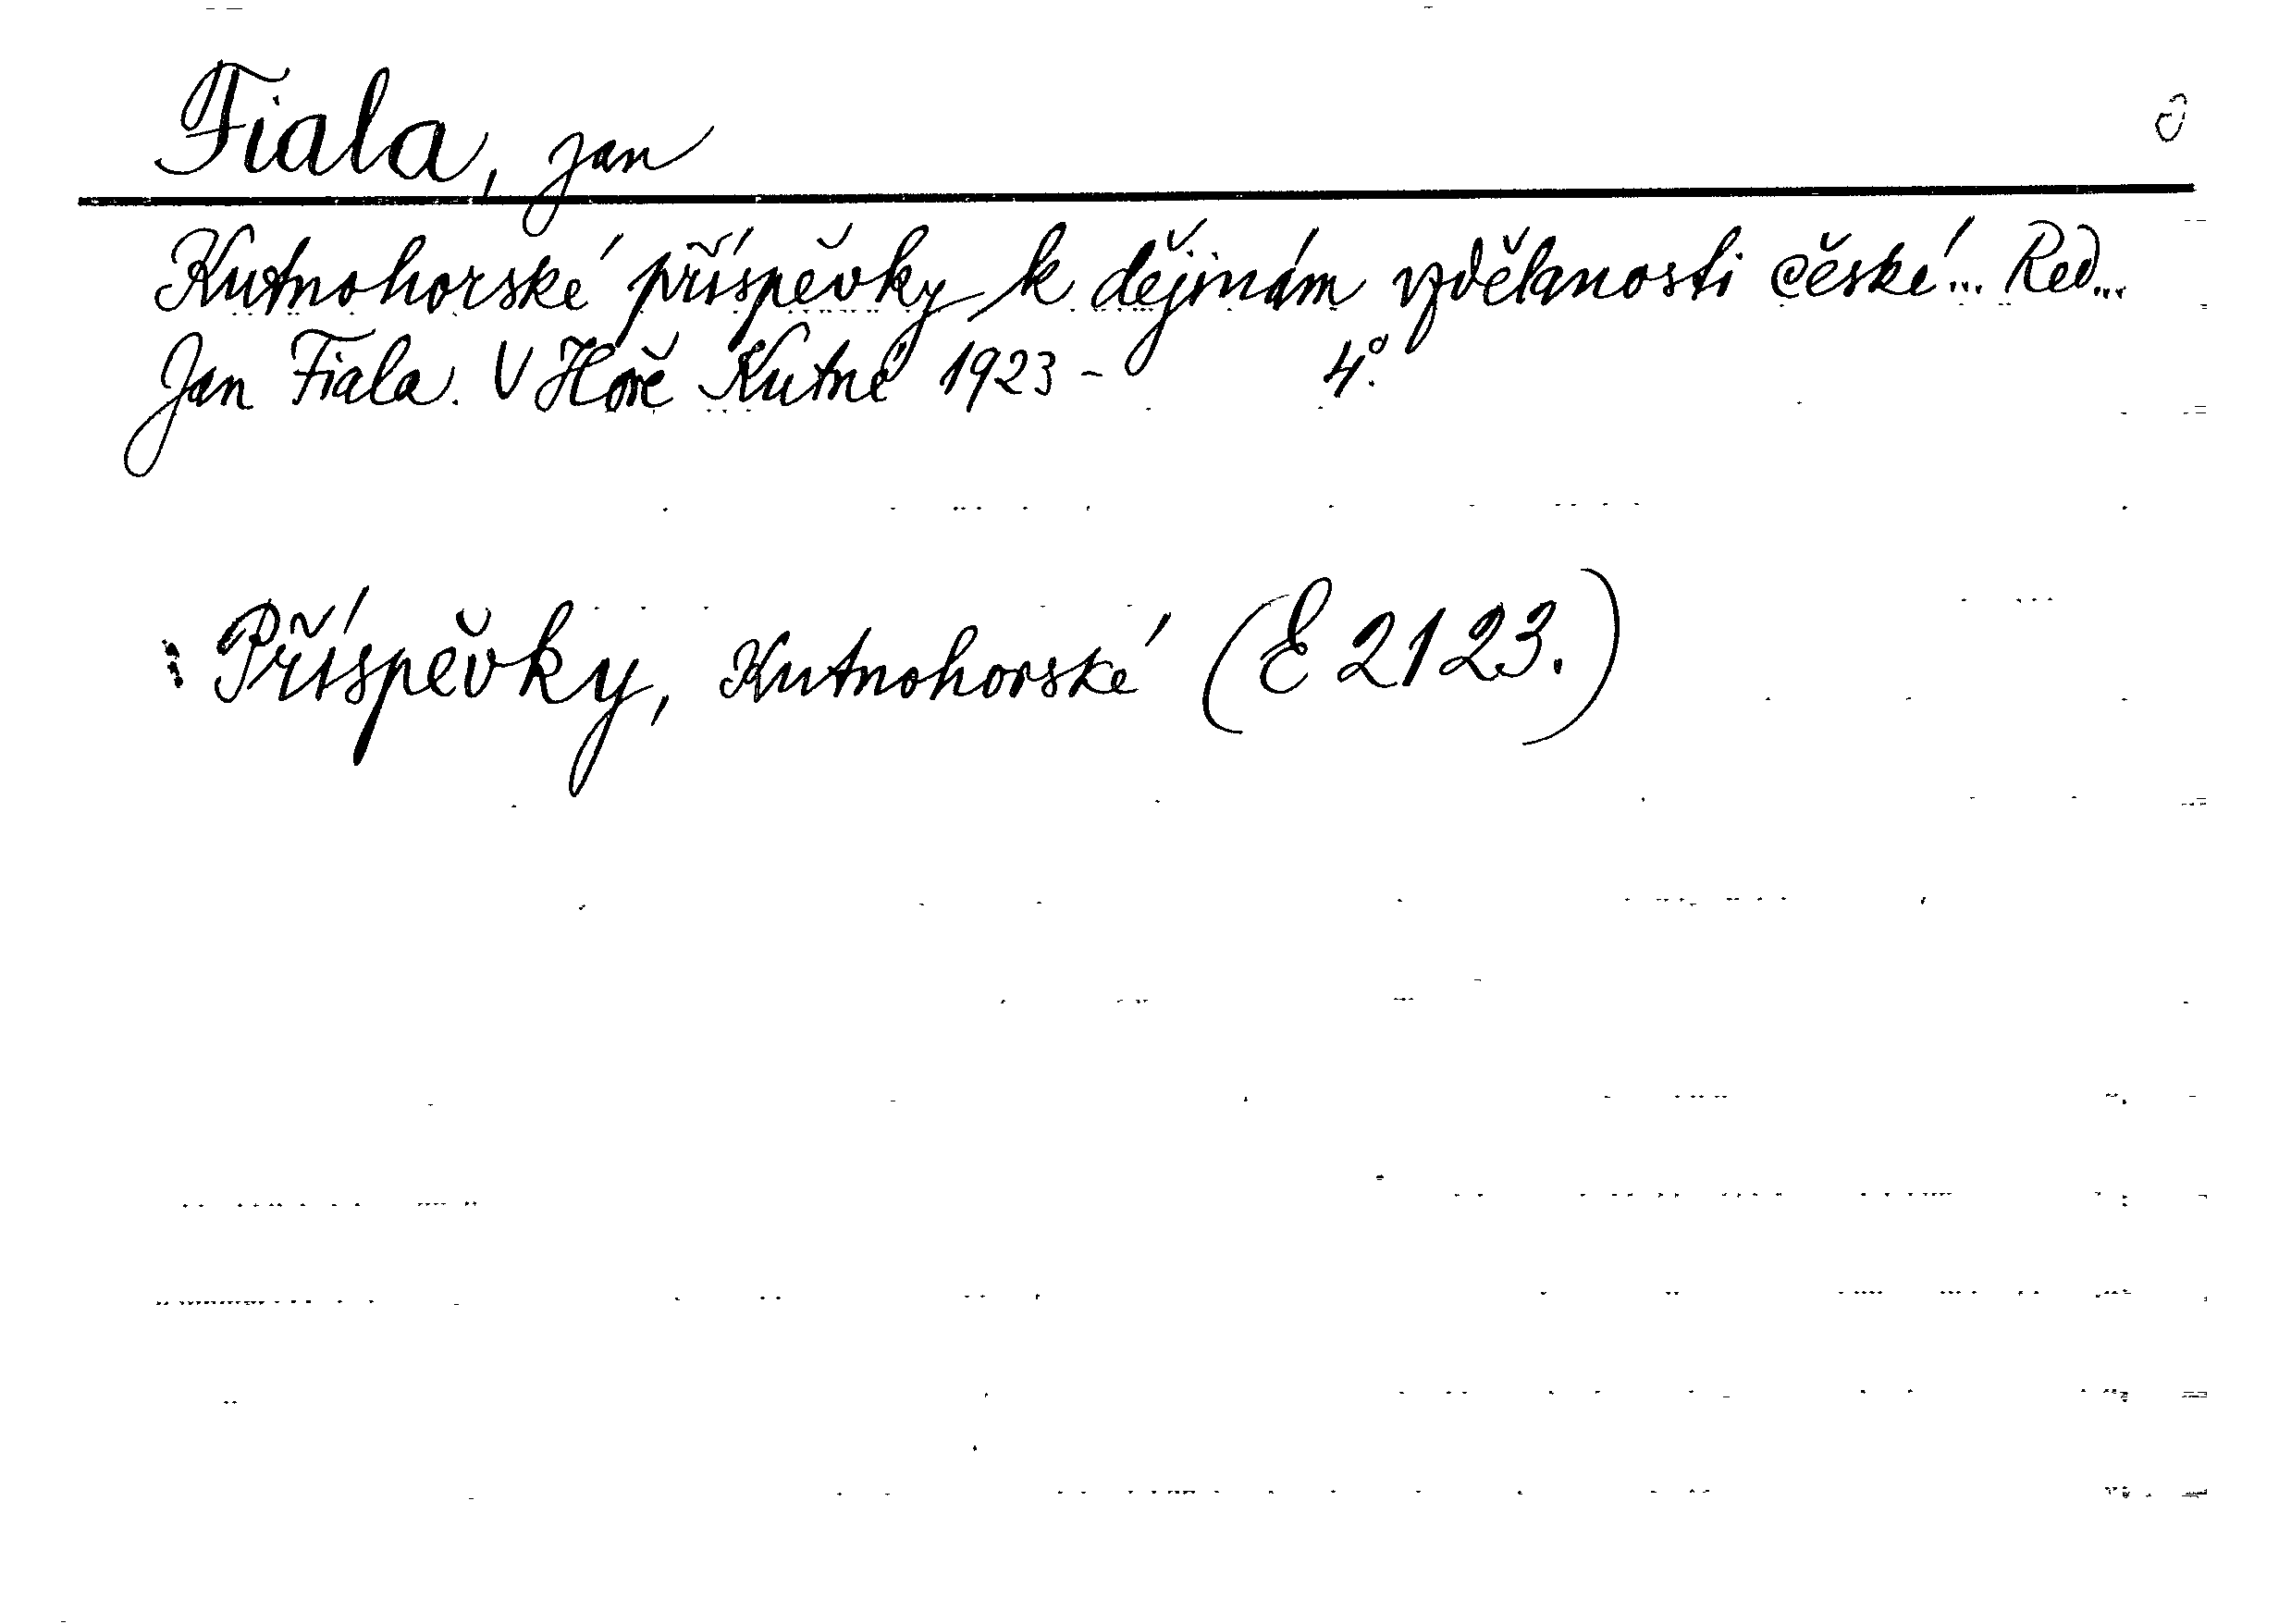 Fiala, Jan
Kutnohorské příspěvky k dějinám vzdělanosti české... Red...
Jan Fiala. V Hoře Kutné 1923 - 4°.
: Příspěvky, Kutnohorské (E 2123.)